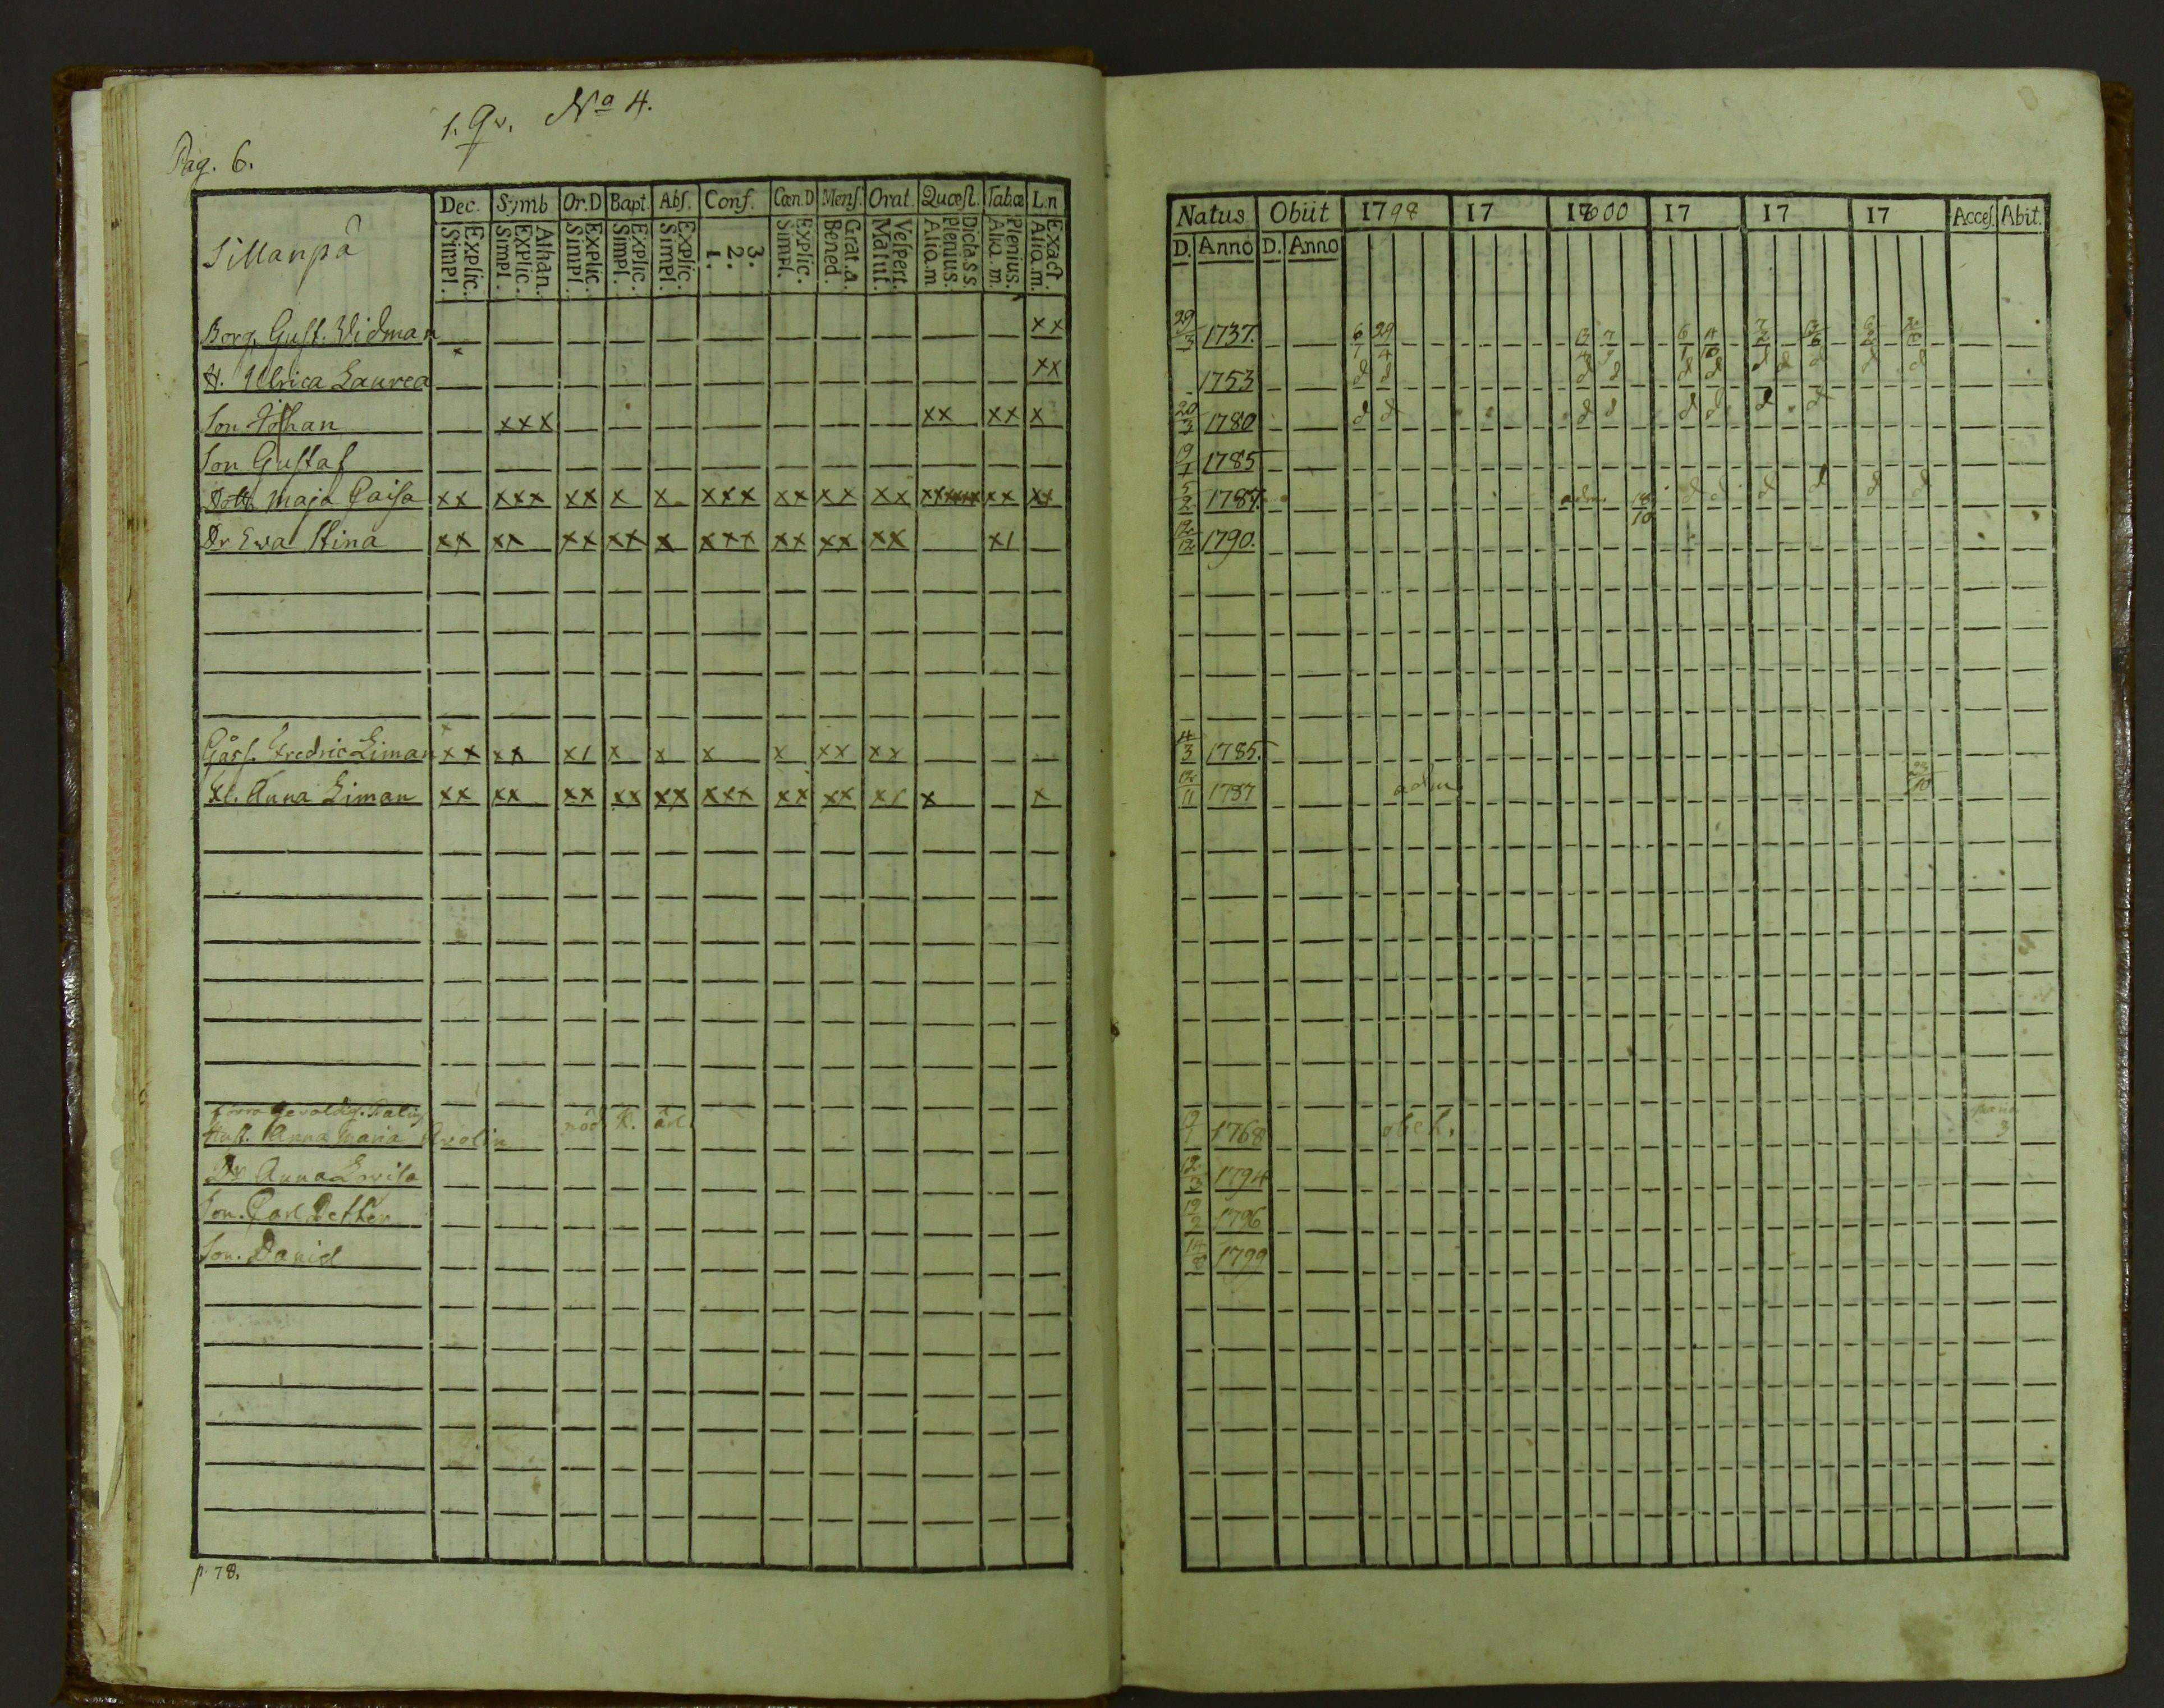 1. Qv. No 4.
Pag. 6.
Sillanpä
Dec. Symb Or.D Bapt. Abs. Conf. Cœn.D Mens. Orat. Quæst. Tabæ L.n
Explic. Simpl. Athan. Explic. Simpl. Explic. Simpl. Explic. Simpl. Explic. Simpl. 3. 2. 1. Explic. Simpl. Grat.a. Bened. Vespert. Matut. Dictass Plenius. Aliq.m Plenius. Aliq.m. Exact. Aliq.m.
Borg. Gust. Widman xx
H. Ulrica Laurea xx
Son Johan xxx xx xx x
Son Gustaf
Dott. Maja Caisa xx xxx xx x x xxx xx xx xx xx xx xx
Dr Ewa Stina xx xx xx xx x xxx xx xx xx x1
Gåss. Fredric Liman xx xx x1 x x x x xx xx
Anna Liman xx xx xx xx xx xxx xx xx x1 x x
Hust. Anna Maria Avolin
Dr Anna Lovisa
Son. Carl Petter
Son. David
p. 78.
Natus Obiit 1798 17 1800 17 17 17 Acces. Abit.
D. Anno D. Anno
29/3 1737. 6/1 29/4
1753 d d d d d d d d d d d
20/3 1780 d d d d d d d d
19/1 1785
5/2 1787. adm. 18/10 d d d d d d
12/12 1790.
4/3 1785.
12/11 1787 adm 23/10
1768
12/3 1794
12/2 1796
14/8 1799